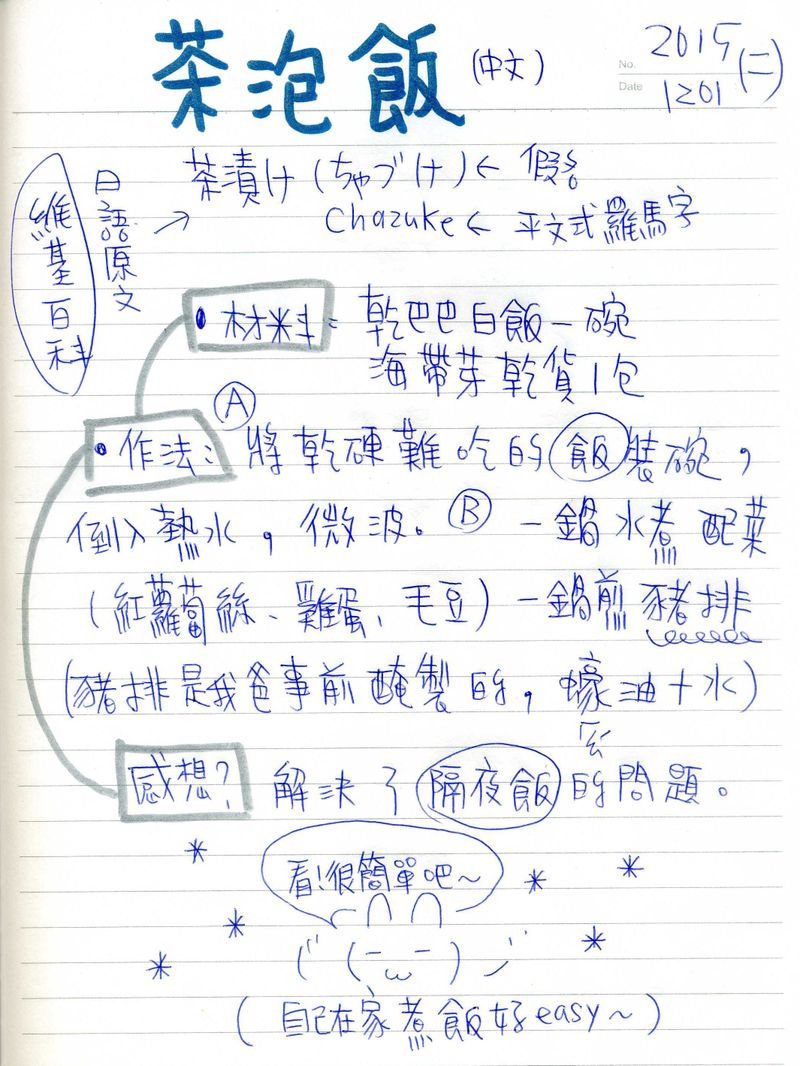 茶泡飯 (中文)
No. 2015 (二)
Date 1201
維基百科
日語原文
→ 茶漬け (ちゃづけ) ← 假名
Chazuke ← 平文式羅馬字
• 材料: 乾巴巴白飯一碗
海帶芽乾貨1包
• 作法: Ⓐ 將乾硬難吃的飯裝碗,
倒入熱水,微波。Ⓑ 一鍋水煮配菜
(紅蘿蔔絲、雞蛋、毛豆) 一鍋煎豬排
(豬排是我爸事前醃製的,蠔油+水)
ㄏㄠˊ
感想? 解決了隔夜飯的問題。
看!很簡單吧~
(自己在家煮飯好easy~)